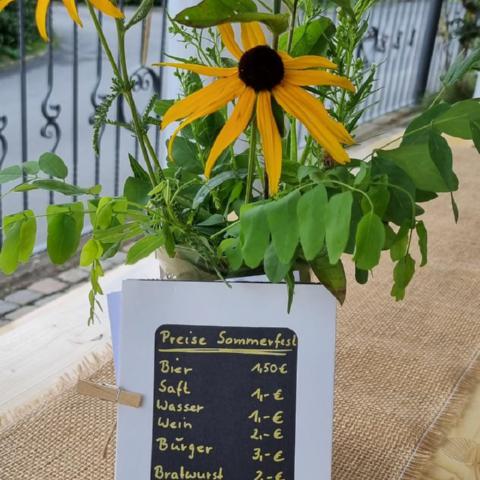 Preise Sommerfest
Bier 1,50€
Saft 1,-€
Wasser 1,-€
Wein 2,-€
Burger 3,-€
Bratwurst 2,-€